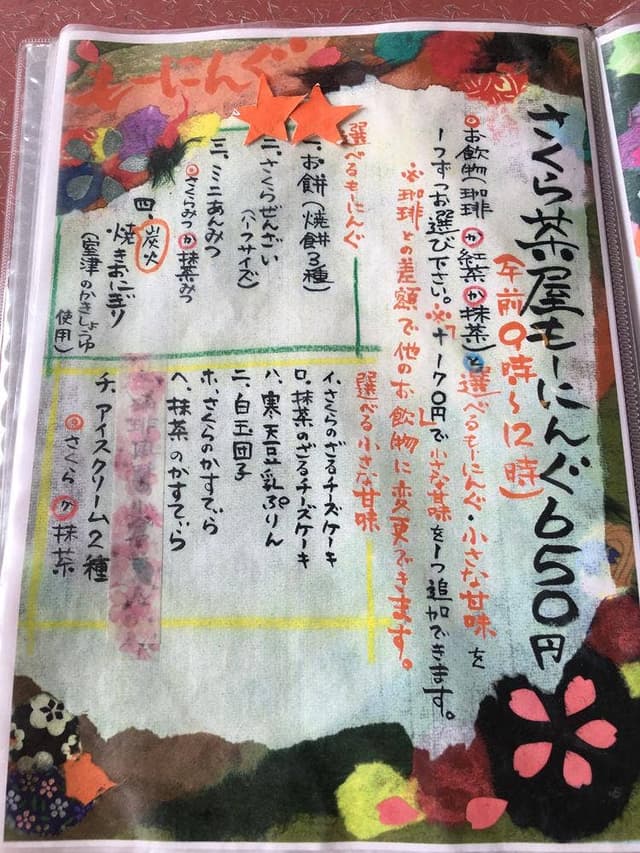 もーにんぐ
さくら茶屋もーにんぐ650円
(午前9時～12時)
◎お飲物(珈琲か紅茶か抹茶)と選べるもーにんぐ・小さな甘味を
一つずつお選び下さい。※「+170円で小さな甘味を1つ追加できます。」
※珈琲との差額で他のお飲物に変更できます。
選べるもーにんぐ
一、お餅(焼餅3種)
二、さくらぜんざい
(ハーフサイズ)
三、ミニあんみつ
◎さくらみつか抹茶みつ
四、炭火
焼きおにぎり
(室津のかきしょうゆ
使用)
選べる小さな甘味
イ、さくらのざるチーズケーキ
ロ、抹茶のざるチーズケーキ
ハ、寒天豆乳ぷりん
ニ、白玉団子
ホ、さくらのかすてぃら
ヘ、抹茶のかすてぃら
チ、アイスクリーム2種
◎さくらか抹茶